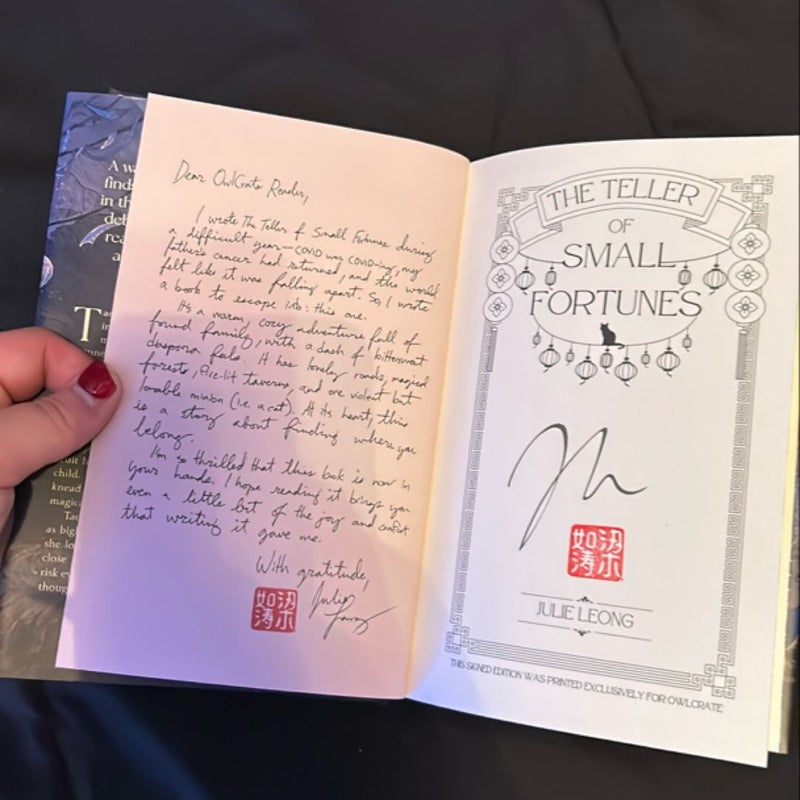 A wa
finds
in th
deb
rea
a
Ta
in
m
nne
uit l
child.
knead
magica
Tao
as big
she lo
close
risk ev
thoug
Dear OwlCrate Reader,
I wrote The Teller of Small Fortunes during
a difficult year—COVID was COVID-ing, my
father's cancer had returned, and the world
felt like it was falling apart. So, I wrote
a book to escape into: this one.
It's a warm, cozy adventure full of
found family, with a dash of bittersweet
diaspora feels. It has lonely roads, magical
forests, fire-lit taverns, and one violent but
lovable minion (i.e. a cat). At its heart, this
is a story about finding where you
belong.
I'm so thrilled that this book is now in
your hands. I hope reading it brings you
even a little bit of the joy and comfort
that writing it gave me.
With gratitude,
Julie
Leong
如涛
THE TELLER
OF
SMALL
FORTUNES
如涛
JULIE LEONG
THIS SIGNED EDITION WAS PRINTED EXCLUSIVELY FOR OWLCRATE